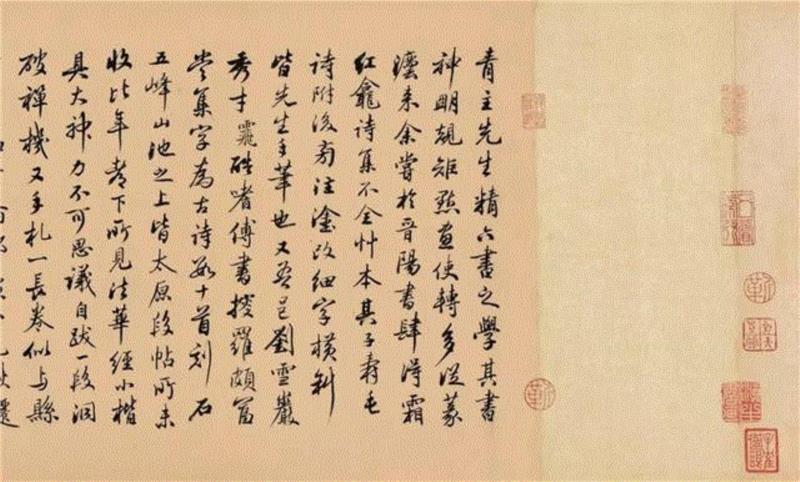 青主先生精六書之學其書
神明規矩點畫使轉多從篆
隸来余嘗於晉陽書肆得霜
紅龕詩集不全艸本其子壽毛
詩附後有注塗改細字橫斜
皆先生手筆也又吾邑劉雪巖
秀才霏碓嗜傅書搜羅頗富
嘗集字為古詩數十首刻石
五峰山池之上皆太原段帖所未
收比年都下所見法華經小楷
具大神力不可思議自跋一段洞
破禪機又手札一長卷似与縣
靳
靳